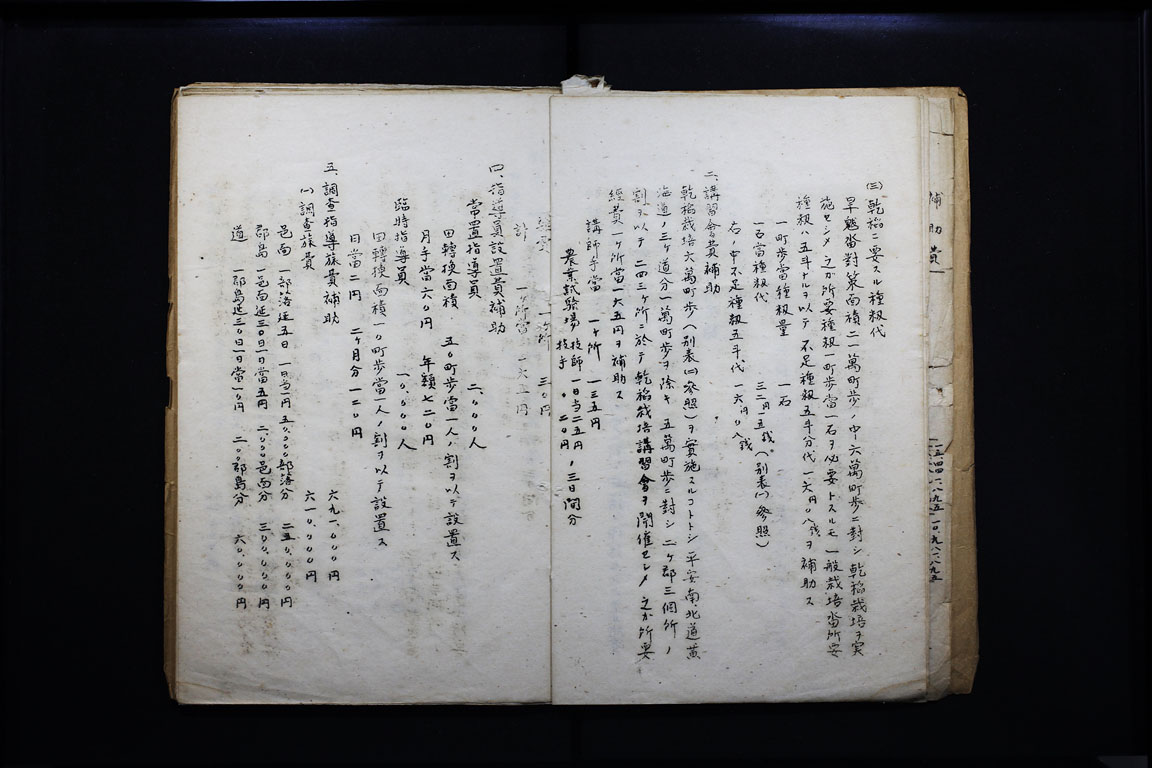 (三) 乾稲ニ要スル種籾代
旱魃畓對策面積二一萬町歩ノ中六萬町歩ニ對シ乾稲栽培ヲ実
施セシメ之カ所要種籾一町歩當一石ヲ必要トスルモ一般栽培畓所要
種籾ハ五斗トルヲ以テ不足種籾五斗分代一六円〇八銭ヲ補助ス
一町歩當種籾量 一石
一石當種籾代 三二円一五銭(別表(一)参照)
右ノ中不足種籾五斗代 一六円〇八銭
二、講習會費補助
乾稲栽培六萬町歩(別表(二)参照)ヲ實施スルコトトシ平安南、北道黄
海道ノ三ケ道分一萬町歩ヲ除キ五萬町歩ニ對シ二ケ郡三個所ノ
割ヲ以テ二四三ケ所ニ於テ乾稲栽培講習會ヲ開催セシメ之カ所要
經費一ケ所當一六五円ヲ補助ス
講師手當 一ケ所 一三五円
農業試験場 技師 一日当二五円、三日間分
技手 〃 二〇円〃
一ケ所 三〇円
計 一ケ所當 一六五円
四、指導員設置費補助
常置指導員 二、〇〇〇人
田轉換面積 五〇町歩當一人ノ割ヲ以テ設置ス
月手當六〇円 年額七二〇円
臨時指導員 一〇、〇〇〇人
田轉換面積一〇町歩當一人ノ割ヲ以テ設置ス
日當二円 二ケ月分一二〇円
五、調査指導旅費補助 六九一、〇〇〇円
(一) 調査旅費 六一〇、〇〇〇円
邑面 一部落延五日 一日当一円 五〇、〇〇〇部落分 二五〇、〇〇〇円
郡島 一邑面延三〇日一日當五円 二、〇〇〇邑面分 三〇〇、〇〇〇円
道 一郡島延三〇日一日當一〇円 二〇〇郡島分 六〇、〇〇〇円
補助費